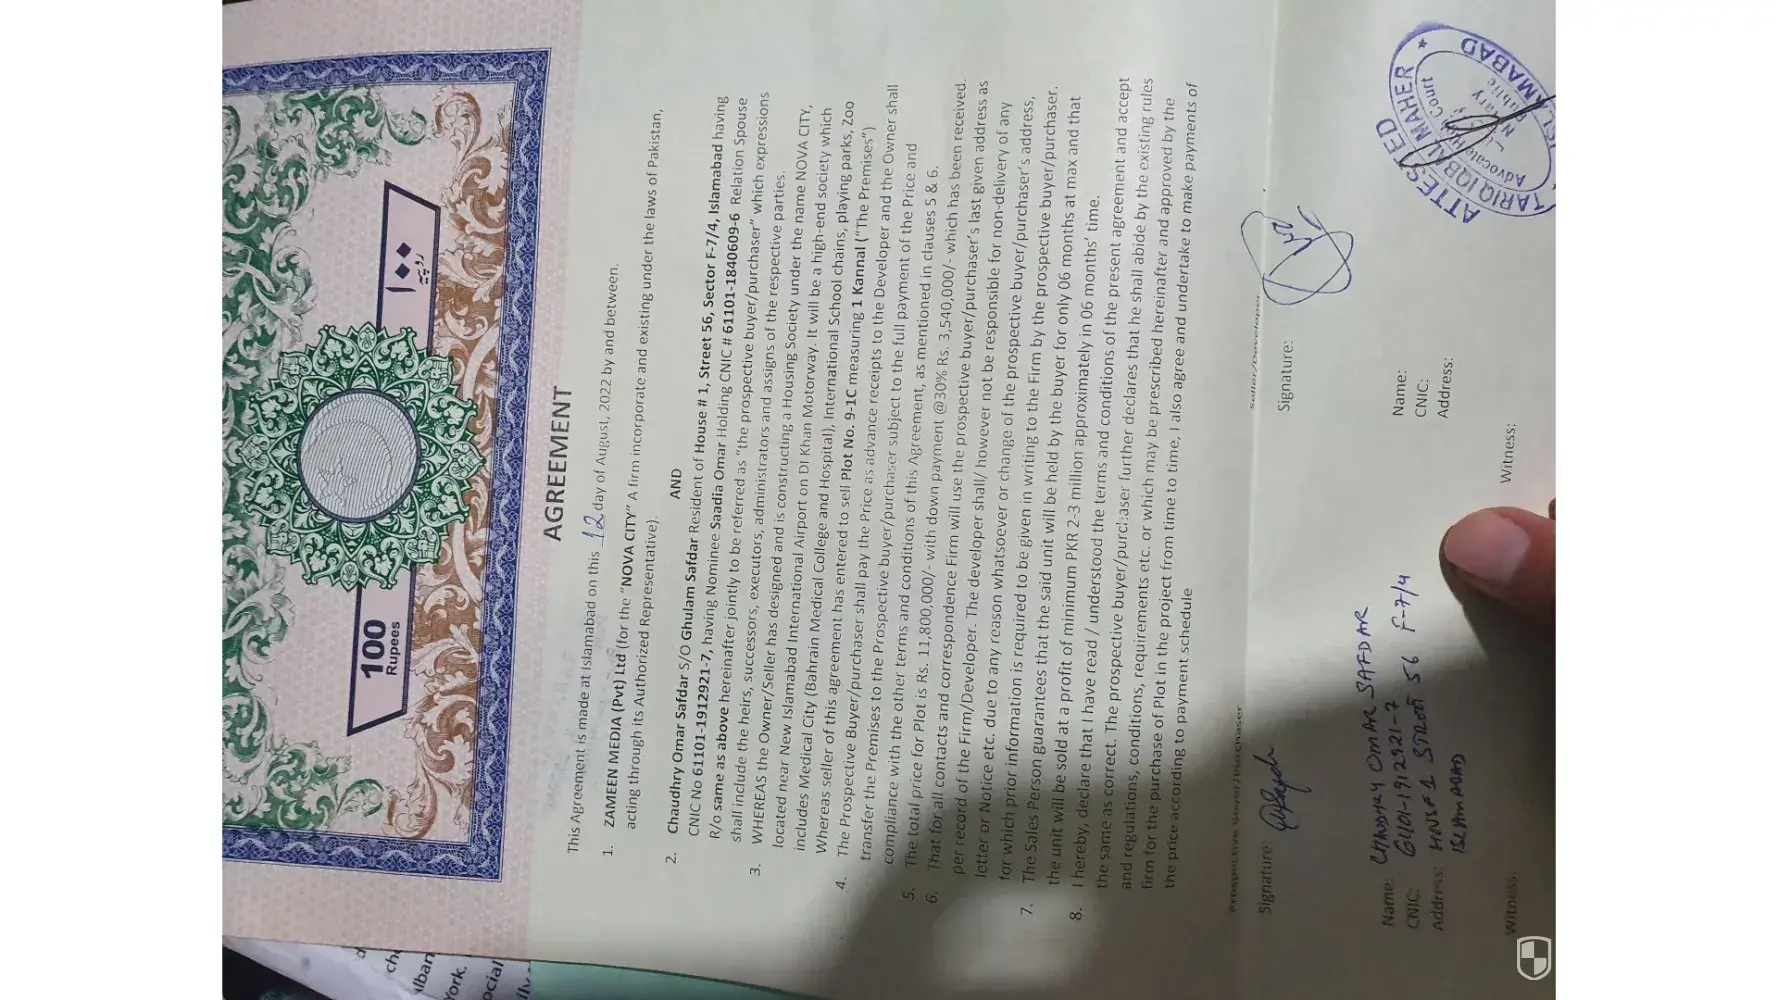 100
Rupees
۱۰۰
روپیہ
AGREEMENT
This Agreement is made at Islamabad on this 12 day of August, 2022 by and between.
1. ZAMEEN MEDIA (Pvt) Ltd (for the "NOVA CITY" A firm incorporate and existing under the laws of Pakistan,
acting through its Authorized Representative).
AND
2. Chaudhry Omar Safdar S/O Ghulam Safdar Resident of House # 1, Street 56, Sector F-7/4, Islamabad having
CNIC No 61101-1912921-7, having Nominee Saadia Omar Holding CNIC # 61101-1840609-6 Relation Spouse
R/o same as above hereinafter jointly to be referred as "the prospective buyer/purchaser" which expressions
shall include the heirs, successors, executors, administrators and assigns of the respective parties.
3. WHEREAS the Owner/Seller has designed and is constructing a Housing Society under the name NOVA CITY,
located near New Islamabad International Airport on DI Khan Motorway. It will be a high-end society which
includes Medical City (Bahrain Medical College and Hospital), International School chains, playing parks, Zoo
Whereas seller of this agreement has entered to sell Plot No. 9-1C measuring 1 Kannal ("The Premises")
4. The Prospective Buyer/purchaser shall pay the Price as advance receipts to the Developer and the Owner shall
transfer the Premises to the Prospective buyer/purchaser subject to the full payment of the Price and
compliance with the other terms and conditions of this Agreement, as mentioned in clauses 5 & 6.
5. The total price for Plot is Rs. 11,800,000/- with down payment @30% Rs. 3,540,000/- which has been received.
6. That for all contacts and correspondence Firm will use the prospective buyer/purchaser's last given address as
per record of the Firm/Developer. The developer shall/ however not be responsible for non-delivery of any
letter or Notice etc. due to any reason whatsoever or change of the prospective buyer/purchaser's address,
for which prior information is required to be given in writing to the Firm by the prospective buyer/purchaser.
7. The Sales Person guarantees that the said unit will be held by the buyer for only 06 months at max and that
the unit will be sold at a profit of minimum PKR 2-3 million approximately in 06 months' time.
8. I hereby, declare that I have read / understood the terms and conditions of the present agreement and accept
the same as correct. The prospective buyer/purchaser further declares that he shall abide by the existing rules
and regulations, conditions, requirements etc. or which may be prescribed hereinafter and approved by the
firm for the purchase of Plot in the project from time to time, I also agree and undertake to make payments of
the price according to payment schedule
Prospective Buyer/Purchaser
Seller/Developer
Signature:
Signature:
Name: CHAUDHRY OMAR SAFDAR
CNIC: 61101-1912921-7
Address: HOUSE 1 STREET 56 F-7/4
ISLAMABAD
Name:
CNIC:
Address:
Witness.
Witness:
ATTESTED
TARIQ IQBAL MAHER
Advocate High Court
Notary
Public